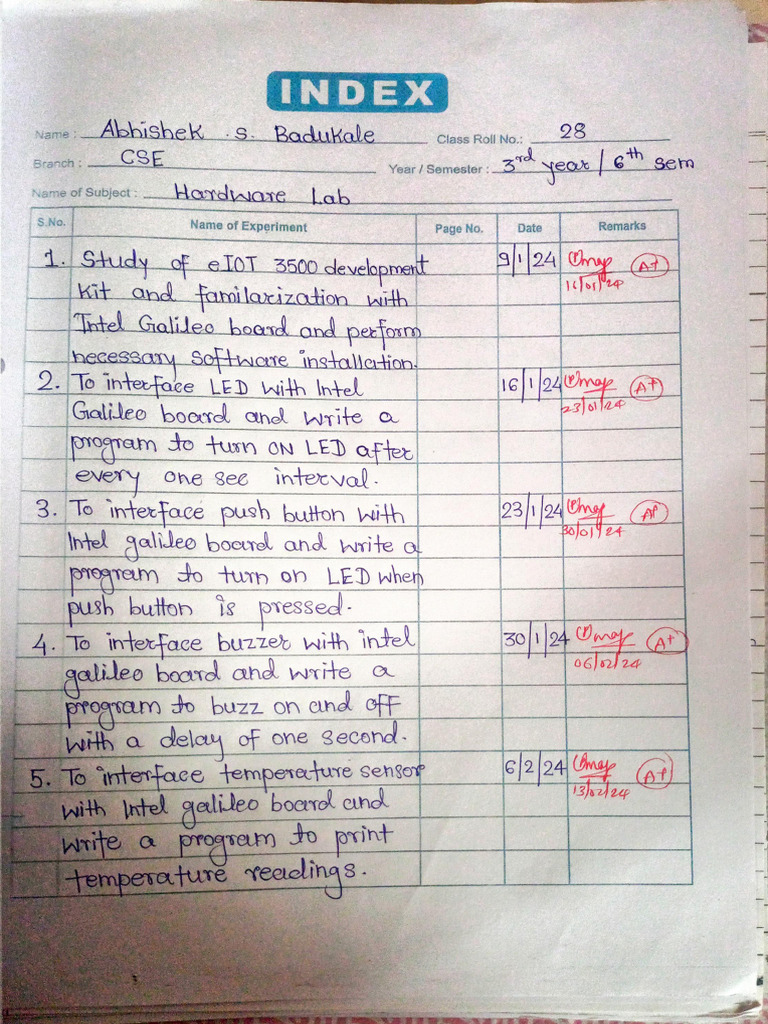 INDEX
Name : Abhishek S. Badukale Class Roll No.: 28
Branch : CSE Year / Semester : 3rd year / 6th sem
Name of Subject : Hardware Lab
S.No. Name of Experiment Page No. Date Remarks
1. Study of eIOT 3500 development 9/1/24 A+
Kit and familarization with 16/01/24
Intel Galileo board and perform
necessary software installation.
2. To interface LED with Intel 16/1/24 A+
Galileo board and write a 23/01/24
program to turn ON LED after
every one sec interval.
3. To interface push button with 23/1/24 A+
Intel galileo board and write a 30/01/24
program to turn on LED when
push button is pressed.
4. To interface buzzer with intel 30/1/24 A+
galileo board and write a 06/02/24
program to buzz on and off
with a delay of one second.
5. To interface temperature sensor 6/2/24 A+
with Intel galileo board and 13/02/24
write a program to print
temperature readings.